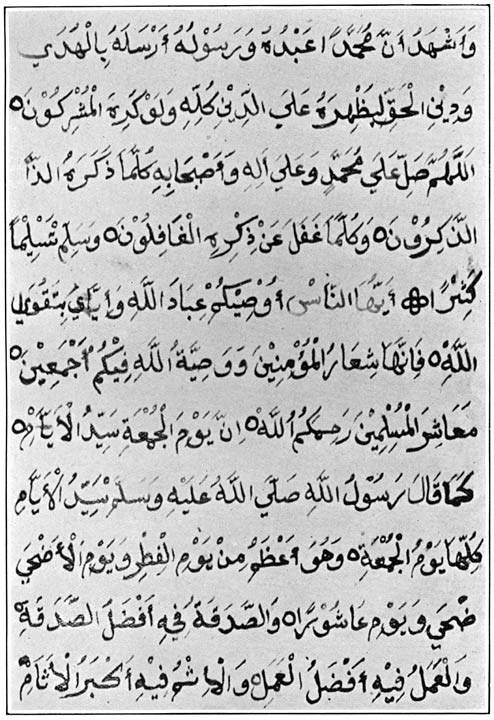 وَأَشْهَدُ أَنَّ مُحَمَّدًا عَبْدُهُ وَرَسُوْلُهُ أَرْسَلَهُ بِالْهُدَي
وَدِيْنِ الْحَقِّ لِيُظْهِرَهُ عَلَي الدِّيْنِ كُلِّهِ وَلَوْ كَرِهَ الْمُشْرِكُوْنَ ۝
اَللَّهُمَّ صَلِّ عَلَي مُحَمَّدٍ وَعَلَي اٰلِهِ وَأَصْحَابِهِ كُلَّمَا ذَكَرَهُ الذَّا
الذَّكِرُوْنَ ۝ وَكُلَّمَا غَفَلَ عَنْ ذِكْرِهِ الْغَافِلُوْنَ ۝ وَسَلِّمْ تَسْلِيْمًا
كَثِيْرًا أَيُّهَا النَّاسُ أُوْصِيْكُمْ عِبَادَ اللَّهِ وَإِيَّايَ بِتَقْوَي
اللَّهِ ۝ فَإِنَّهَا شِعَارُ الْمُؤْمِنِيْنَ وَوَصِيَّةُ اللَّهِ فِيْكُمْ أَجْمَعِيْنَ ۝
مَعَاشِرَ الْمُسْلِمِيْنَ رَحِمَكُمُ اللَّهُ ۝ اِنَّ يَوْمَ الْجُمُعَةِ سَيِّدُ الْاَيَّامِ ۝
كَمَا قَالَ رَسُوْلُ اللَّهِ صَلَّي اللَّهُ عَلَيْهِ وَسَلَّمَ سَيِّدُ الْاَيَّامِ
كُلِّهَا يَوْمُ الْجُمُعَةِ ۝ وَهُوَ أَعْظَمُ مِنْ يَوْمِ الْفِطْرِ وَيَوْمِ الْأَضْحَي
ضْحَي وَيَوْمِ عَاشُوْرَا ۝ وَالصَّدَقَةُ فِيْهِ أَفْضَلُ الصَّدَقَةِ ۝
وَالْعَمَلُ فِيْهِ أَفْضَلُ الْعَمَلِ ۝ وَالْاِثْمُ فِيْهِ أَكْبَرُ الْأَثَامِ